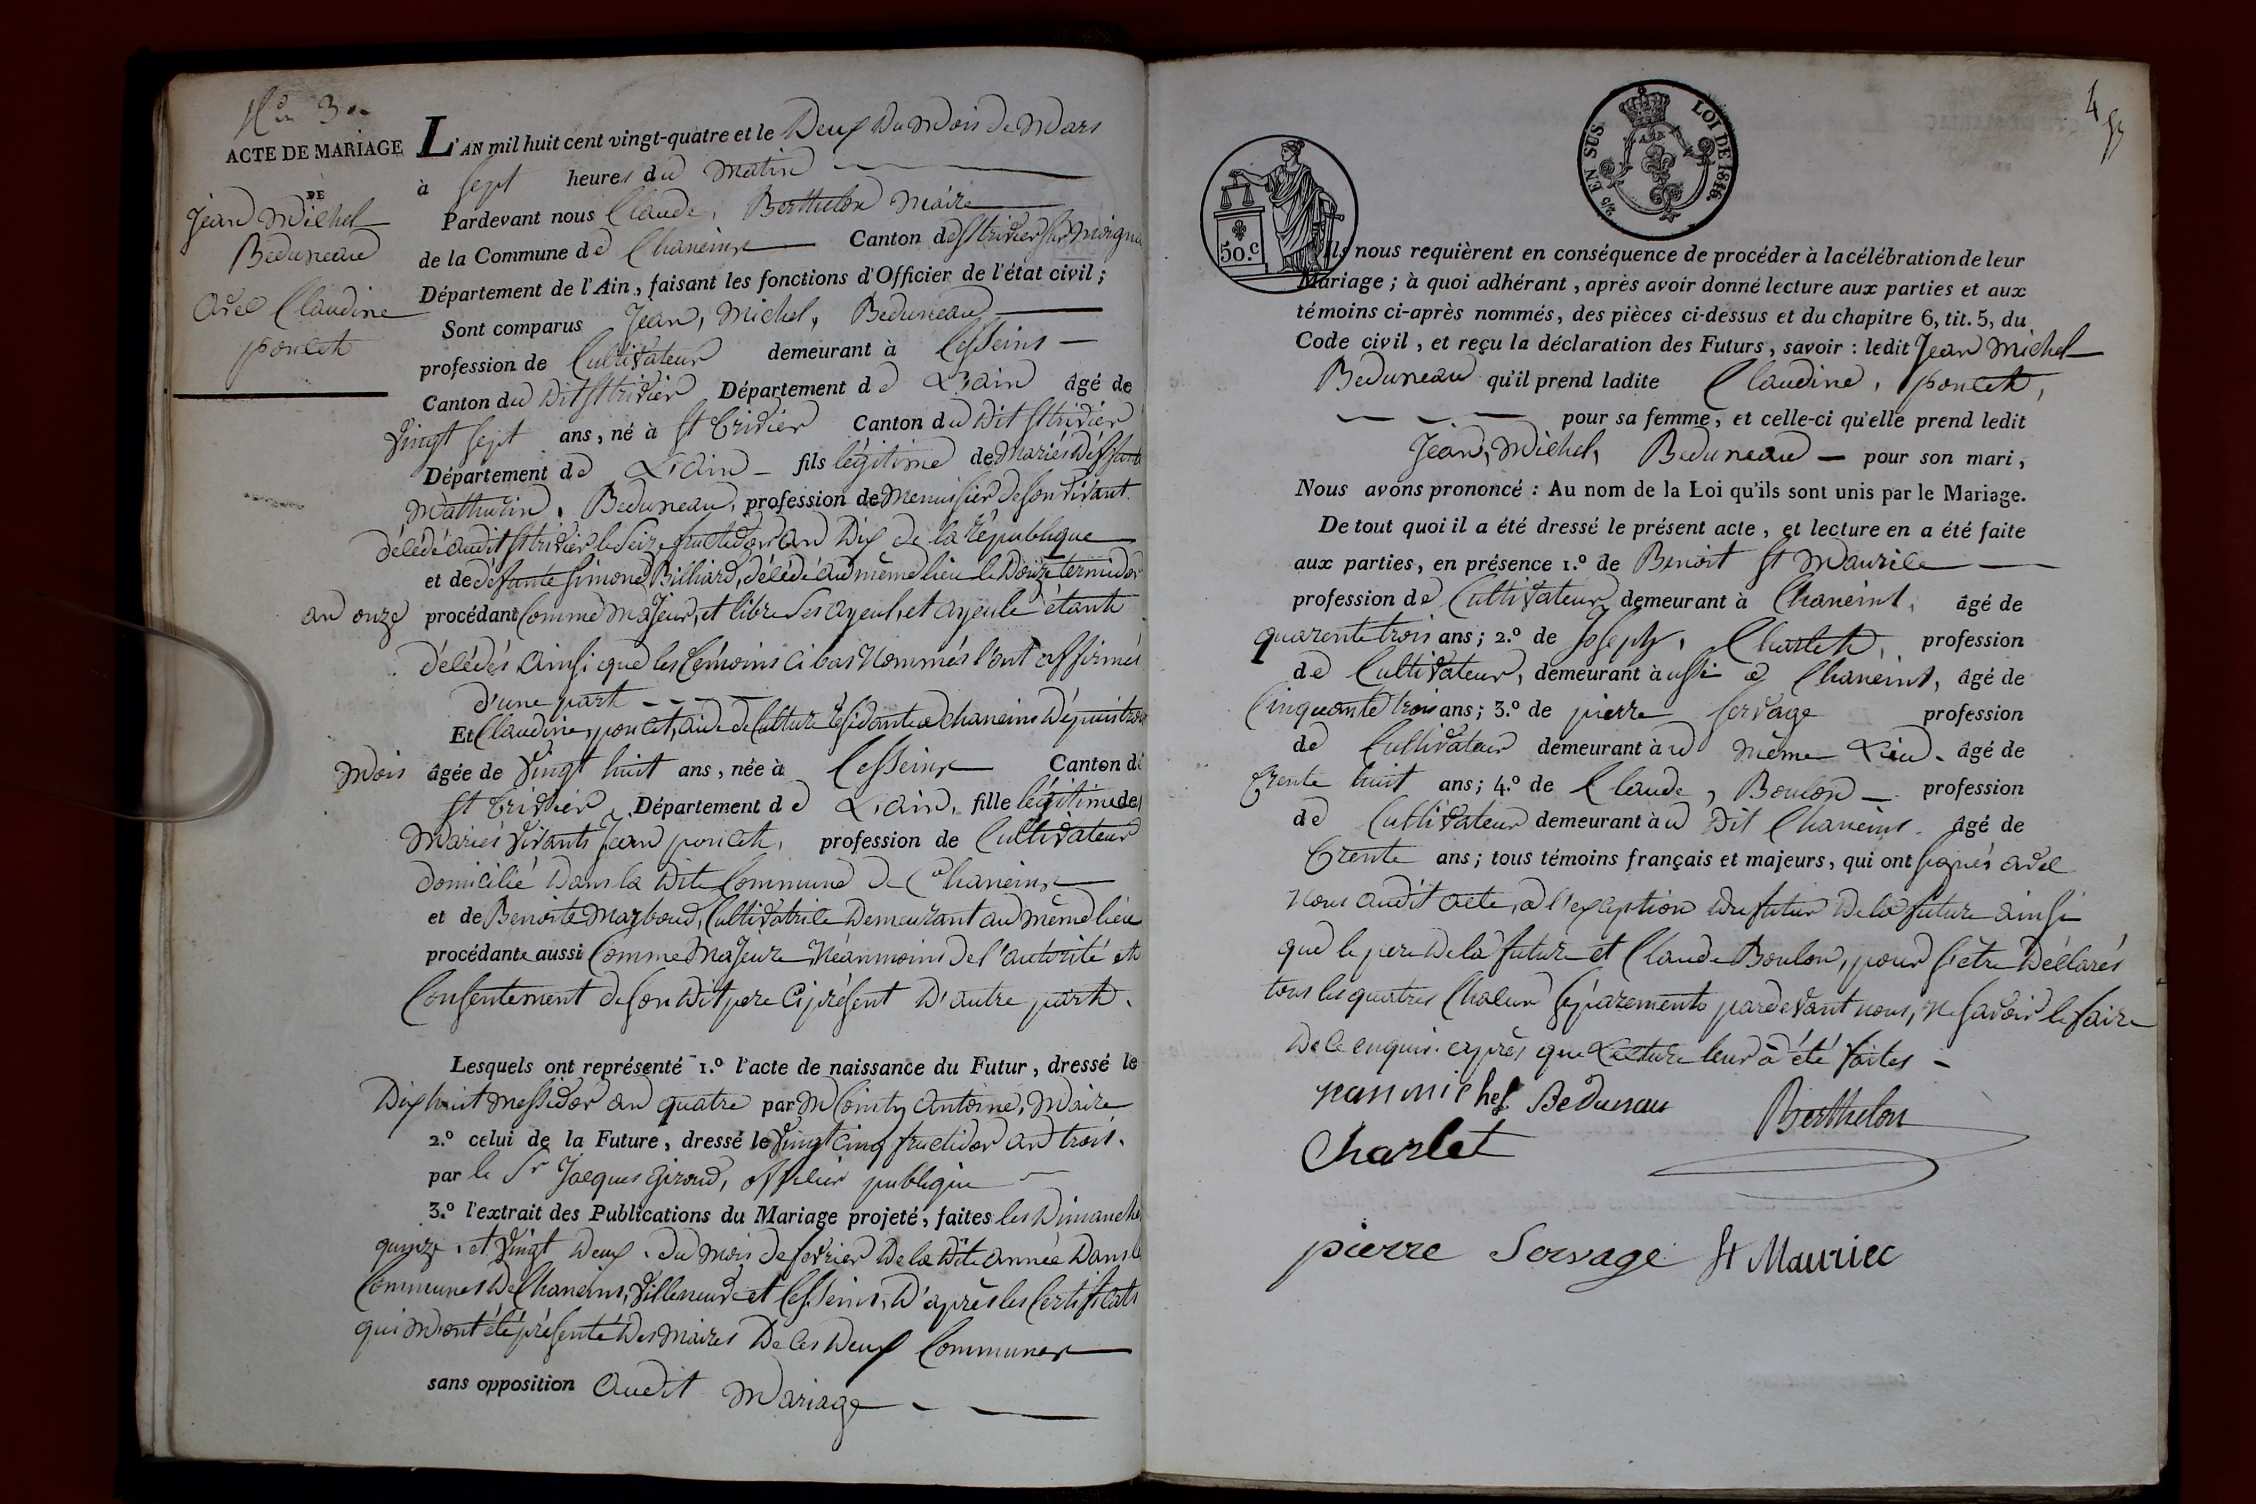 N.º 3.
ACTE DE MARIAGE
DE
Jean Michel
Beduneau
avec Claudine
poncet
L'AN mil huit cent vingt-quatre et le Deux Du Mois de Mars
à sept heures du matin
Pardevant nous Claude, Berthelon Maire
de la Commune de Chaneins Canton de St trivier sur Moignan
Département de l'Ain, faisant les fonctions d'Officier de l'état civil;
Sont comparus Jean, Michel, Beduneau
profession de Cultivateur demeurant à Cesseins
Canton du Dit St trivier Département de L'ain âgé de
Vingt sept ans, né à St trivier Canton du Dit St trivier
Département de L'ain fils légitime de Mariés Deffunts
Mathurin, Beduneau, profession de Menuisier de son vivant
décédé audit St trivier le Seize fructidor an Dix de la République
et de défunte Simone Billiard, décédé au même lieu le Douze termidor
an onze procédant Comme Majeur, et libre Ses ayeuls et ayeule étant
décédés ainsi que les témoins ci bas Nommés l'ont affirmés
d'une part
Et Claudine poncet, aide de Culture résidante à chaneins Dépuis trois
Mois âgée de Vingt huit ans, née à Cesseins Canton de
St trivier, Département de L'ain, fille légitime de
Mariés Vivants Jean poncet, profession de Cultivateur
domicilié Dans la Dite Commune de Chaneins
et de Benoite Marboud, Cultivatrice Demeurant au même lieu
procédante aussi Comme Majeure Néanmoins de l'autorité et
Consentement de Son Dit pere Ci présent D'autre part.
Lesquels ont représenté 1.º l'acte de naissance du Futur, dressé le
Dix huit Messidor an quatre par M Antoine, Maire
2.º celui de la Future, dressé le Vingt Cinq fructidor an trois.
par le Sr Jacques Giroud, officier publique
3.º l'extrait des Publications du Mariage projeté, faites les Dimanche
quinze, et Vingt Deux, du mois de fevrier De la Dite année Dans les
Communes De Chaneins, Villeneuve et Cesseins, D'après les Certificats
qui M'ont été présenté Des Maires De Ces Deux Communes
sans opposition audit Mariage
4
EN SUS. LOI DE 1816.
50.c
Ils nous requièrent en conséquence de procéder à la célébration de leur
Mariage; à quoi adhérant, après avoir donné lecture aux parties et aux
témoins ci-après nommés, des pièces ci-dessus et du chapitre 6, tit. 5, du
Code civil, et reçu la déclaration des Futurs, savoir: ledit Jean Michel
Beduneau qu'il prend ladite Claudine, poncet,
pour sa femme, et celle-ci qu'elle prend ledit
Jean, Michel, Beduneau pour son mari,
Nous avons prononcé: Au nom de la Loi qu'ils sont unis par le Mariage.
De tout quoi il a été dressé le présent acte, et lecture en a été faite
aux parties, en présence 1.º de Benoit St Maurice
profession de Cultivateur demeurant à Chaneins, âgé de
quarente trois ans; 2.º de Joseph, Charlet, profession
de Cultivateur, demeurant à ussi à Chaneins, âgé de
Cinquante trois ans; 3.º de pierre Servage profession
de Cultivateur demeurant à u même Lieu. âgé de
trente huit ans; 4.º de Claude, Boulon profession
de Cultivateur demeurant à u Dit Chaneins. âgé de
trente ans; tous témoins français et majeurs, qui ont signés avec
Nous audit acte, à l'exception du futur De la future ainsi
que le pere De la future et Claude Boulon, pour s'être Déclarés
tous les quatres Chacun séparements pardevant nous, ne savoir le faire
De ce enquis. après que Lecture leur à été faites
jean michel Bedunau Berthelon
Charlet
pierre Servage St Mauriec